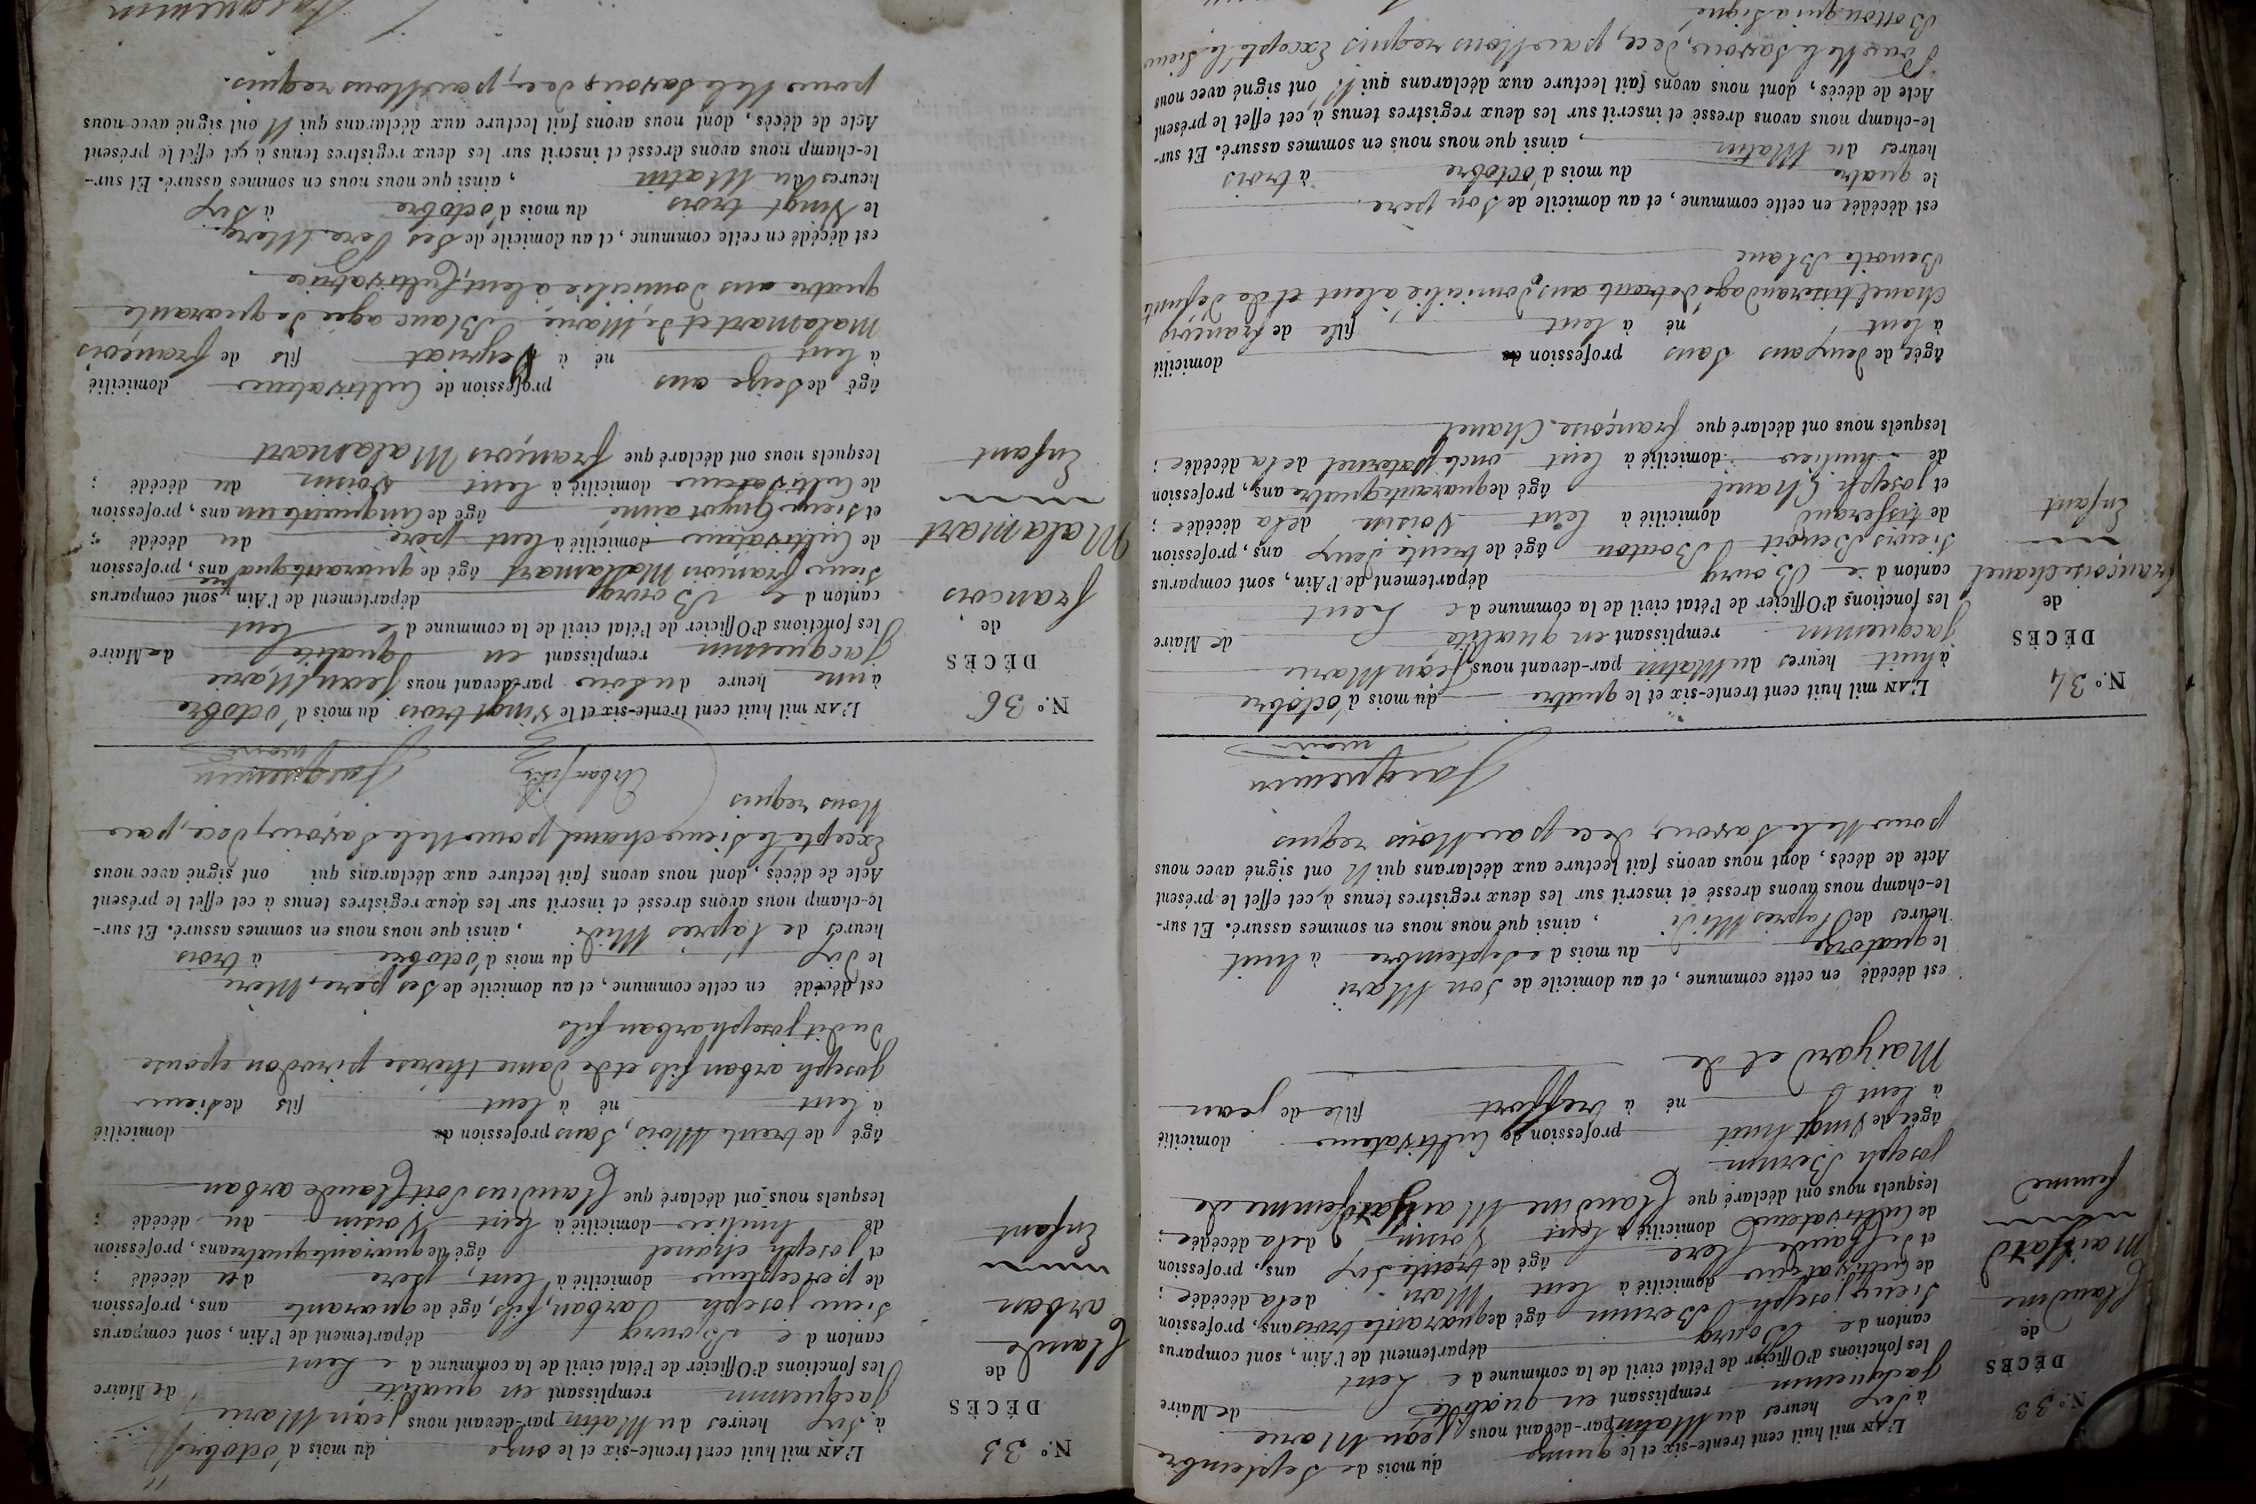 N.° 33
DÉCÈS
de
Claudine
Maissard
femme
L'AN mil huit cent trente-six et le quinze du mois de Septembre
à dix heures du Matin par-devant nous Jean Marie
Jacquemin remplissant en qualité de Maire
les fonctions d'Officier de l'état civil de la commune de Lent
canton de Bourg département de l'Ain, sont comparus
Sieurs joseph Bernin âgé de quarante trois ans, profession
de Cultivateur domicilié à Lent Mari de la décédée ;
et de Claude âgé de trente six ans, profession
de Cultivateur domicilié à Lent Voisin de la décédée ;
lesquels nous ont déclaré que Claudine femme de
joseph Bernin
âgée de Vingt huit profession de Cultivateur domicilié
à Lent né à treffort fille de jean
Maiyard et de
est décédé en cette commune, et au domicile de Son Mari
le quatorze du mois de Septembre à huit
heures de l'après Midi , ainsi que nous nous en sommes assuré. Et sur-
le-champ nous avons dressé et inscrit sur les deux registres tenus à cet effet le présent
Acte de décès, dont nous avons fait lecture aux déclarans qui N'ont signé avec nous
pour Ne le Savoir, de ce par Nous requis
Jacquemin
maire
N.° 34
DÉCÈS
de
françoise chanel
Enfant
L'AN mil huit cent trente-six et le quatre du mois d'octobre
à huit heures du Matin par-devant nous Jean Marie
Jacquemin remplissant en qualité de Maire
les fonctions d'Officier de l'état civil de la commune de Lent
canton de Bourg département de l'Ain, sont comparus
Sieurs Benoit Bouton âgé de trente deux ans, profession
de tisserand domicilié à Lent Voisin de la décédée ;
et joseph Chanel âgé de quarante quatre ans, profession
de huilier domicilié à Lent oncle paternel de la décédée ;
lesquels nous ont déclaré que françoise Chanel
âgée de deux ans Sans profession domicilié
à Lent né à Lent fille de françois
Chanel tisserand agé de trente ans, domicilié à Lent et de defunte
Benoite Blanc
est décédée en cette commune, et au domicile de Son père
le quatre du mois d'octobre à trois
heures du Matin , ainsi que nous nous en sommes assuré. Et sur-
le-champ nous avons dressé et inscrit sur les deux registres tenus à cet effet le présent
Acte de décès, dont nous avons fait lecture aux déclarans qui N'ont signé avec nous
Pour Ne le Savoir, de ce, par Nous requis Excepté le Sieur
Botton qui a Signé
N.° 35
DÉCÈS
de
Claude
arban
Enfant
L'AN mil huit cent trente-six et le onze du mois d'octobre
à dix heures du Matin par-devant nous Jean Marie
Jacquemin remplissant en qualité de Maire
les fonctions d'Officier de l'état civil de la commune de Lent
canton de Bourg département de l'Ain, sont comparus
Sieur joseph arban, fils, âgé de quarante ans, profession
de percepteur domicilié à Lent, père du décédé ;
et joseph chanel âgé de quarante quatre ans, profession
de huilier domicilié à Lent Voisin du décédé ;
lesquels nous ont déclaré que Claudius Claude arban
âgé de trente Mois, Sans profession domicilié
à Lent né à Lent fils de Sieur
joseph arban fils et de dame thérese pirodon epouse
du dit joseph arban fils
est décédé en cette commune, et au domicile de Ses père, Mère
le dix du mois d'octobre à trois
heures de l'apres Midi , ainsi que nous nous en sommes assuré. Et sur-
le-champ nous avons dressé et inscrit sur les deux registres tenus à cet effet le présent
Acte de décès, dont nous avons fait lecture aux déclarans qui ont signé avec nous
Excepté le Sieur chanel pour Ne le Savoir, de ce, par
Nous requis
Arban fils
Jacquemin
maire
N.° 36
DÉCÈS
de
francois
Malamart
Enfant
L'AN mil huit cent trente-six et le Vingt trois du mois d'octobre
à une heure du soir par-devant nous Jean Marie
Jacquemin remplissant en qualité de Maire
les fonctions d'Officier de l'état civil de la commune de Lent
canton de Bourg département de l'Ain, sont comparus
Sieur francois Mallamart âgé de quarante quatre ans, profession
de Cultivateur domicilié à Lent père du décédé ;
et Sieur Guyot ainé âgé de Cinquante un ans, profession
de Cultivateur domicilié à Lent Voisin du décédé ;
lesquels nous ont déclaré que françois Malamart
âgé de Seize ans profession de Cultivateur domicilié
à Lent né à Peyriat fils de françois
Malamart et de Marie Blanc agée de quarante
quatre ans domicilié à Lent, Cultivatrice
est décédé en cette commune, et au domicile de Ses Pere, Mere,
le Vingt trois du mois d'octobre à Six
heures du Matin , ainsi que nous nous en sommes assuré. Et sur-
le-champ nous avons dressé et inscrit sur les deux registres tenus à cet effet le présent
Acte de décès, dont nous avons fait lecture aux déclarans qui N'ont signé avec nous
pour Ne le Savoir, de ce, par Nous requis.
Jacquemin